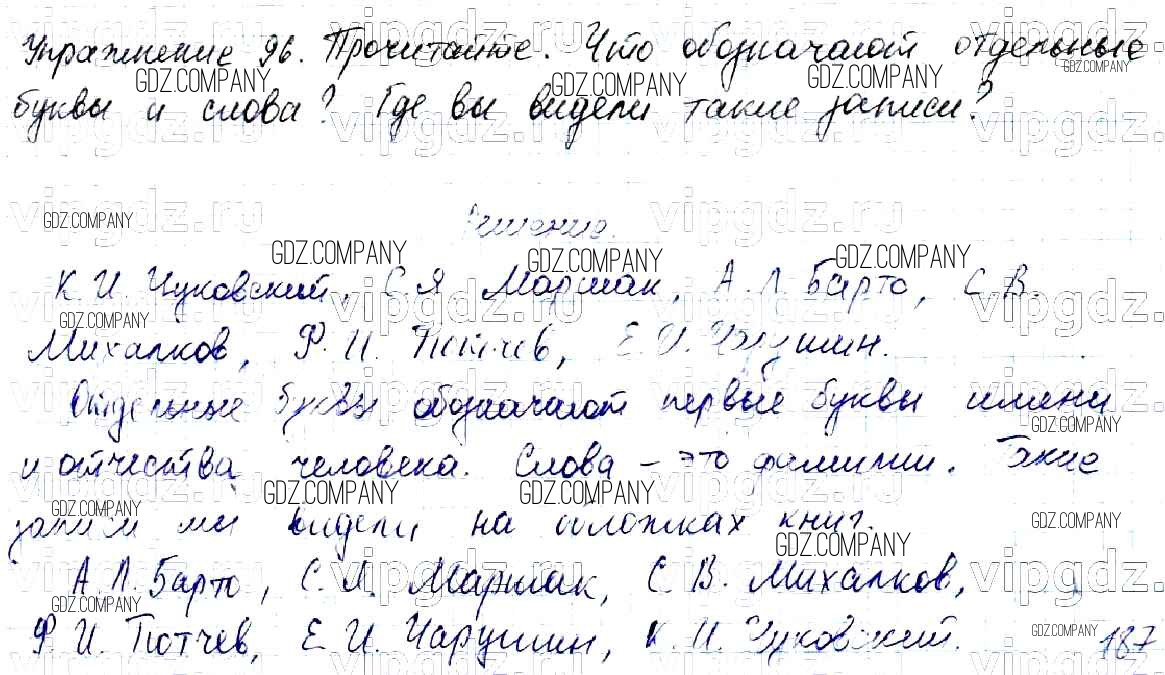 Упражнение 96. Прочитайте. Что обозначают отдельные
буквы и слова? Где вы видели такие записи?
Решение.
К. И. Чуковский, С. Я. Маршак, А. Л. Барто, С. В.
Михалков, Ф. И. Тютчев, Е. И. Чарушин.
Отдельные буквы обозначают первые буквы имени
и отчества человека. Слова – это фамилии. Такие
записи мы видели на обложках книг.
А. Л. Барто, С. Я. Маршак, С. В. Михалков,
Ф. И. Тютчев, Е. И. Чарушин, К. И. Чуковский.
187
vipgdz.ru
GDZ.COMPANY